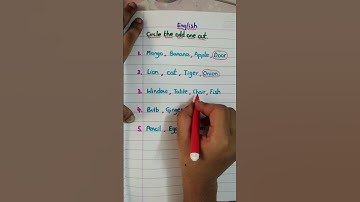 English
Circle the odd one out.
1. Mango, Banana, Apple, Door
2. Lion, cat, Tiger, Green
3. Window, Table, Chair, Fish
4. Bulb, Ginger
5. Pencil, Egg